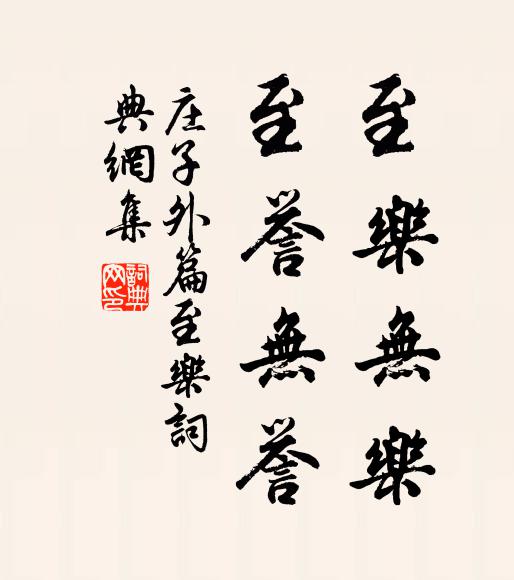 至樂無樂
至誉無誉
庄子外篇至樂詞
典網集
詞典
网印